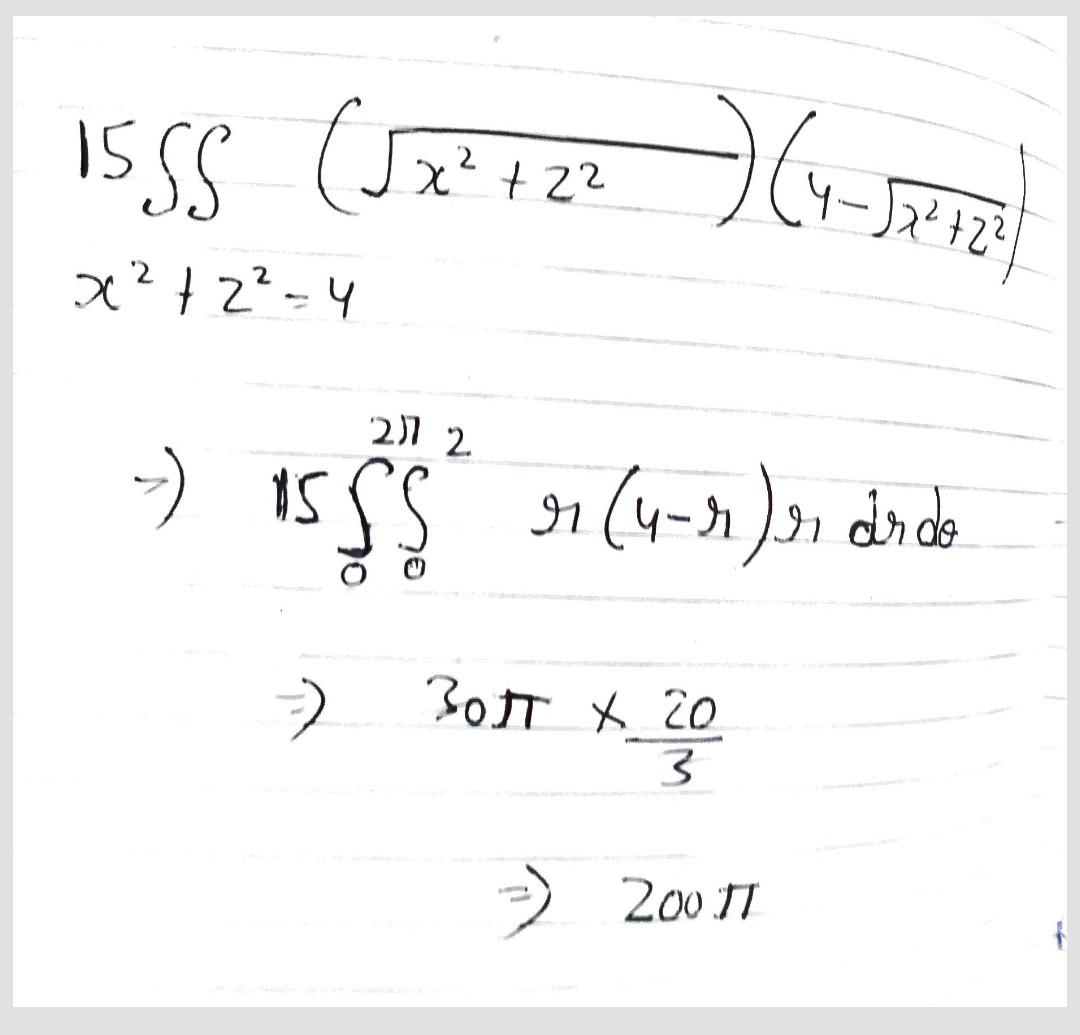 15 ∫∫ (√x² + z²) (4 - √x² + z²)
x² + z² = 4
⇒ 15 ∫₀^2π ∫₀^2 r (4 - r) r dr dθ
⇒ 30π × 20/3
⇒ 200π